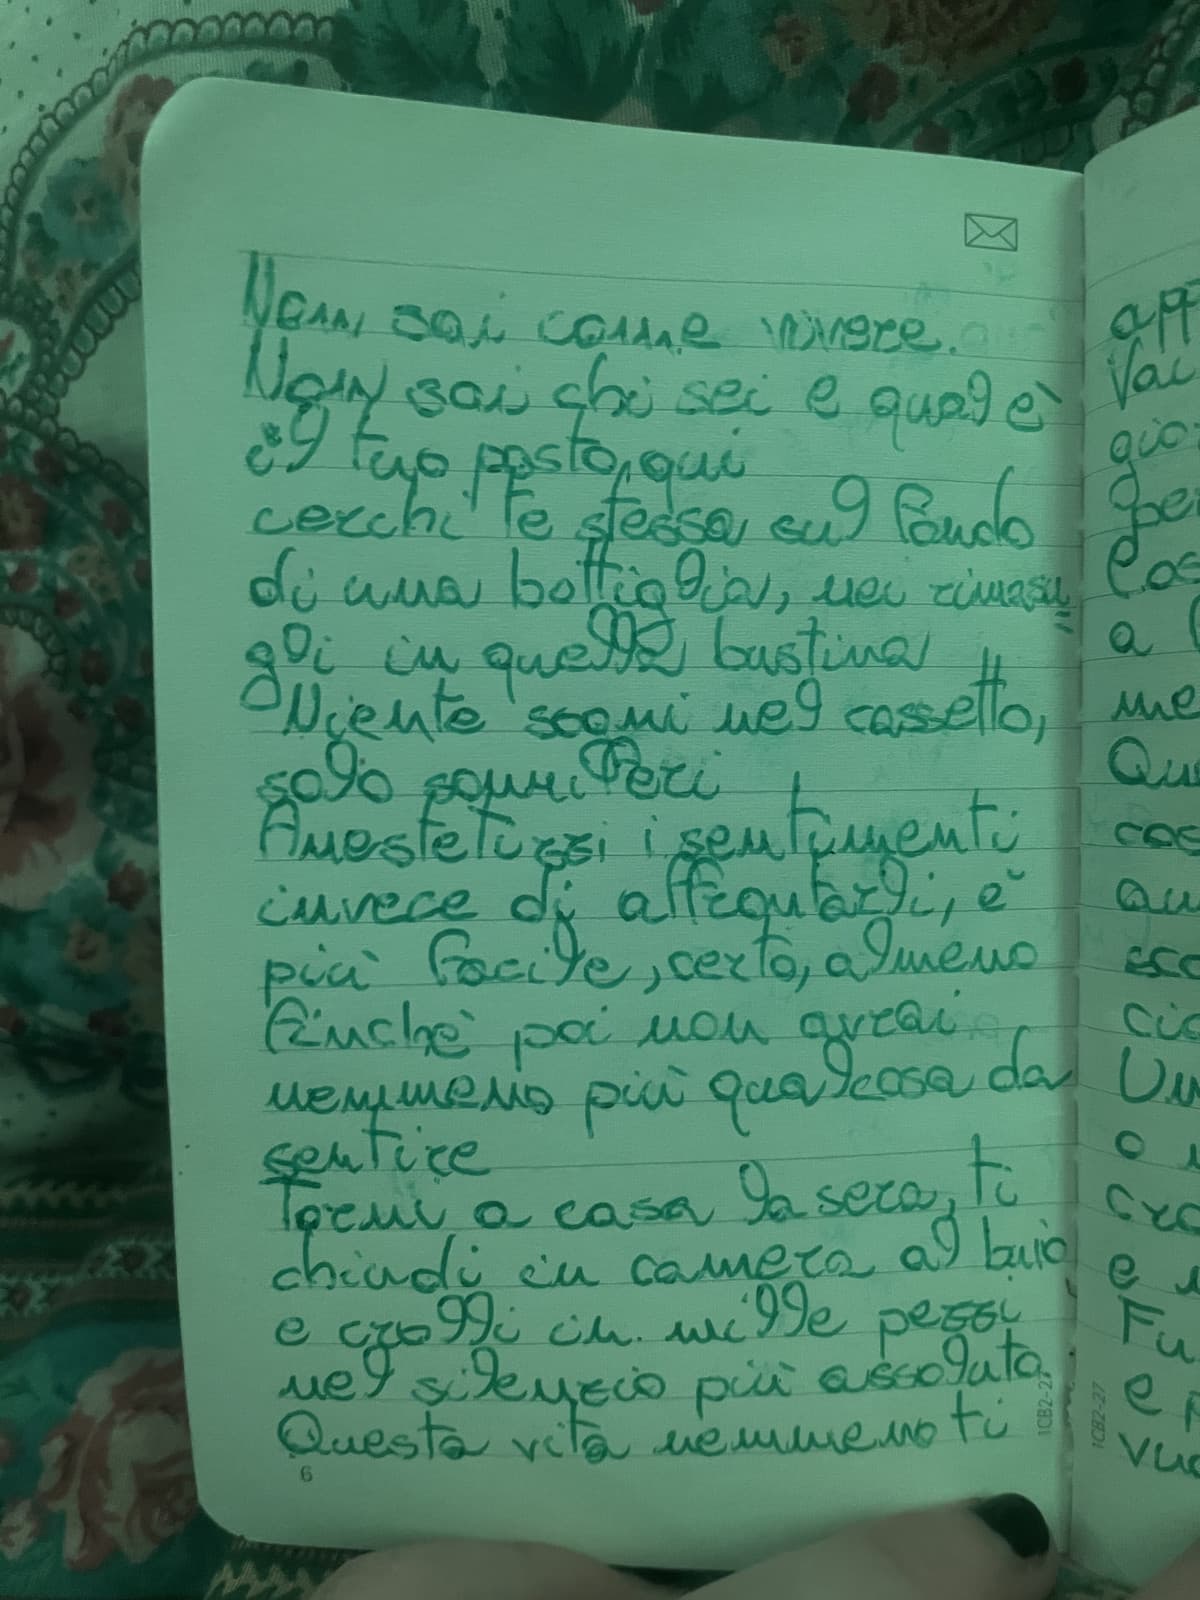 Non sai come vivere.
Non sai chi sei e qual è
il tuo posto, qui
cerchi te stessa sul fondo
di una bottiglia, nei rimasu
gli in quella bustina
Niente sogni nel cassetto,
solo sonniferi
Anestetizzi i sentimenti
invece di affrontarli, è
più facile, certo, almeno
finchè poi non avrai
nemmeno più qualcosa da
sentire
Torni a casa la sera, ti
chiudi in camera al buio
e crolli in mille pezzi
nel silenzio più assoluto
Questa vita nemmeno ti
6
1CB2-27
app
Vai
gio
per
a
me
Qu
cos
qu
sco
cia
Un
o
cro
e
Fu
e p
vuo
1CB2-27